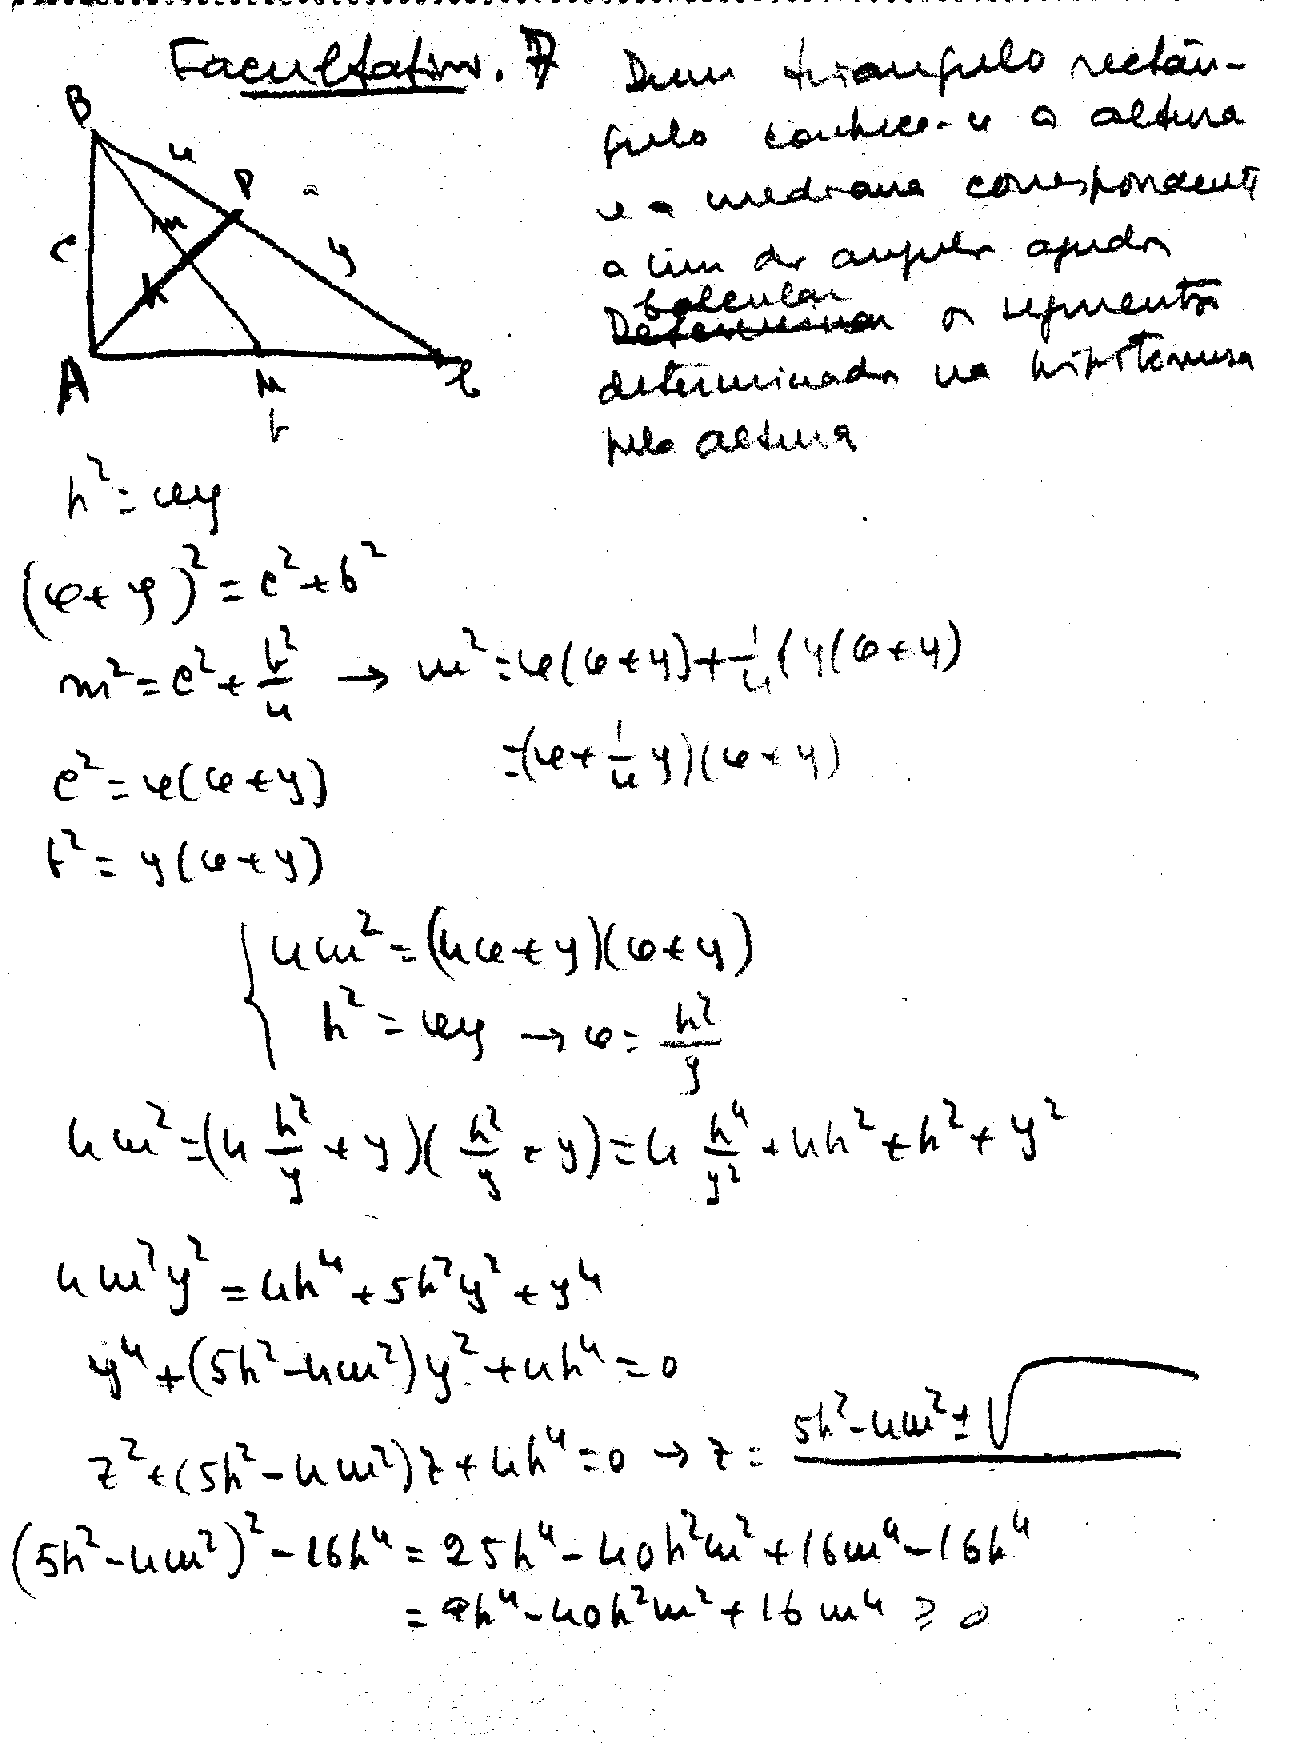 Facultativo. 7
Dum triângulo rectân-
gulo conhece-se a altura
e a mediana correspondente
a um dos angulos agudos
Calcular os segmentos
determinados na hipotenusa
pela altura
B
x
P
a
m
c
y
h
A
M
C
b
h² = xy
(x+y)² = c²+b²
m² = c² + b²/4 → m² = x(x+y) + 1/4 (y(x+y)
= (x + 1/4 y)(x+y)
c² = x(x+y)
b² = y(x+y)
{ 4m² = (4x+y)(x+y)
h² = xy → x = h²/y
4m² = (4 h²/y + y)(h²/y + y) = 4 h⁴/y² + 4h² + h² + y²
4m²y² = 4h⁴ + 5h²y² + y⁴
y⁴ + (5h²-4m²)y² + 4h⁴ = 0
z² + (5h²-4m²)z + 4h⁴ = 0 → z = 5h²-4m² ± √
(5h²-4m²)² - 16h⁴ = 25h⁴ - 40h²m² + 16m⁴ - 16h⁴
= 9h⁴ - 40h²m² + 16m⁴ ≥ 0